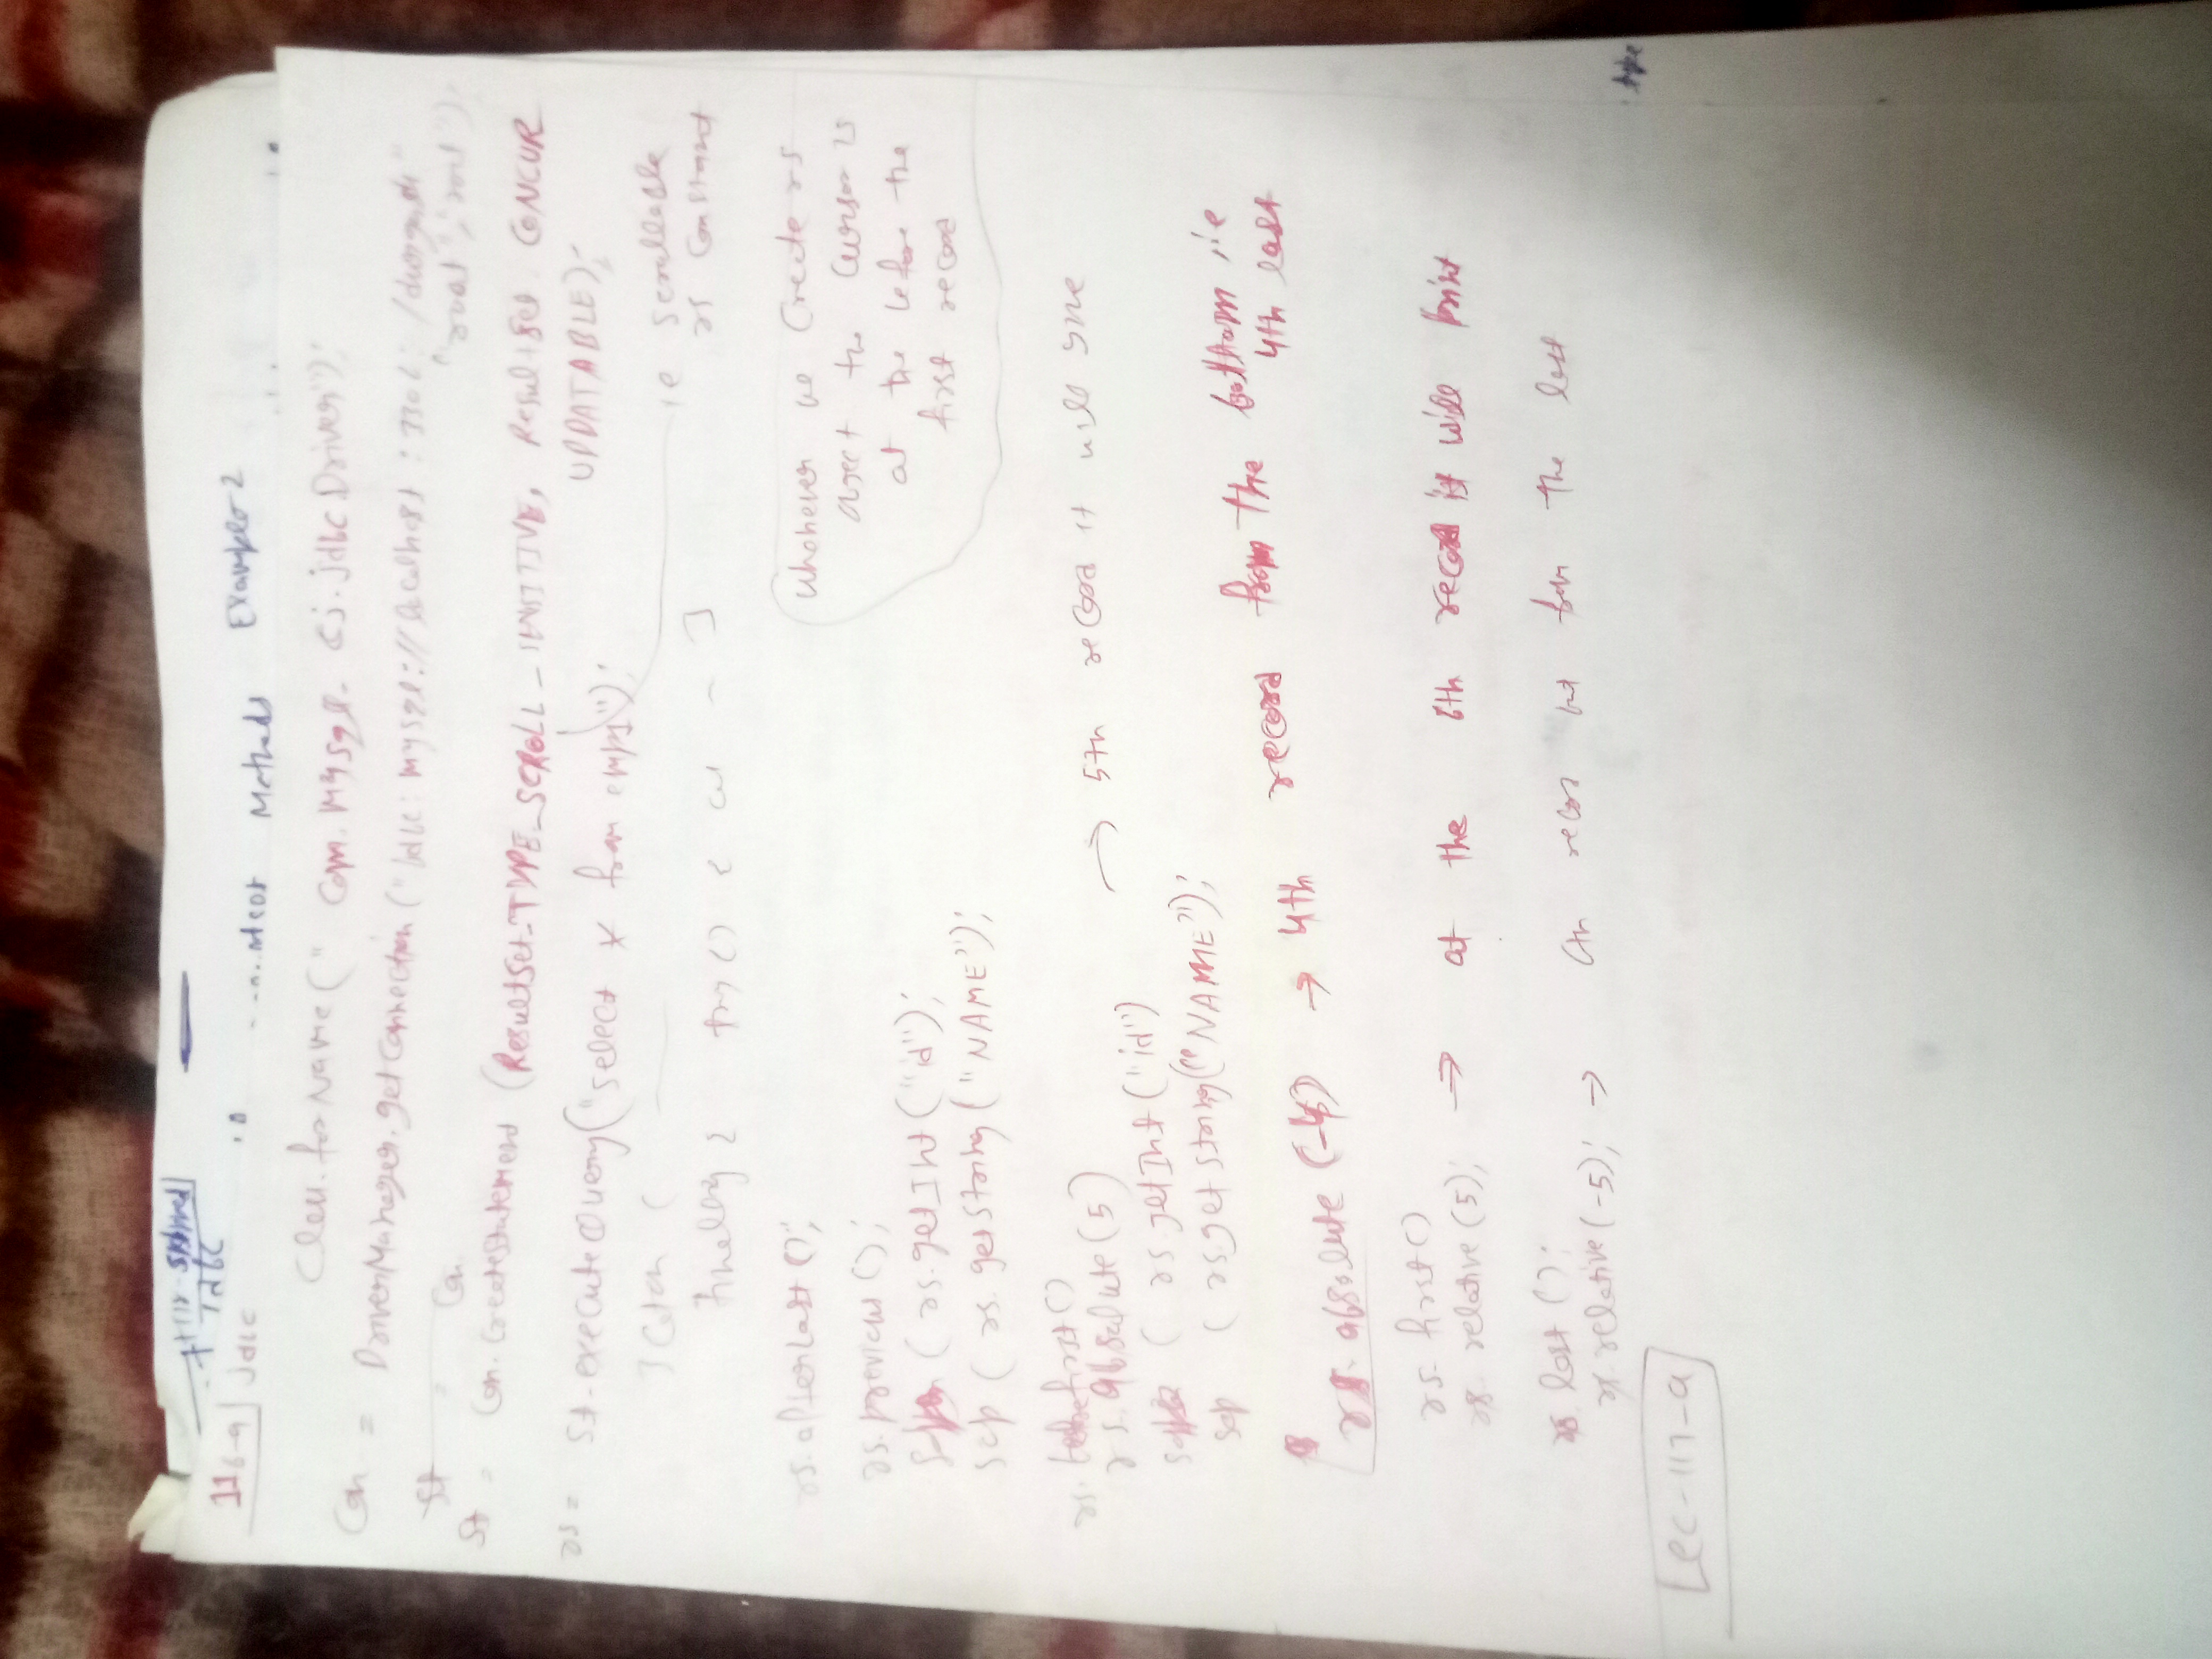 Jdbc
116-a] jdbc
Methods Example-2
Class.forName(" Com.mysql. cj.jdbc Driver");
Con = DriverManager.getConnection("jdbc: mysql://localhost : 3306 /
"root","root");
St = Con
St = Con.CreateStatement (ResultSet-TYPE_SCROLL_SENSITIVE, ResultSet CONCUR
UPDATABLE);
rs = St.executeQuery("select * from emp1");
} Catch (
ie scrollable
rs Constant
finally { try () {
rs.afterLast ();
rs.previous ();
sop ( rs.getInt ("id");
sop ( rs.getString ("NAME");
Whenever we Create rs
object the Cursor is
at the before the
first record
rs. beforefirst ()
rs.absolute (5)
→ 5th record it will give
sop ( rs.getInt ("id")
sop ( rs.getString("NAME");
rs. absolute (-4) → 4th record from the bottom i.e
4th last
rs. first ()
rs. relative (5); → at the 6th record it will print
rs. last ();
rs. relative (-5); → record but from the last
type
Lec-117-a